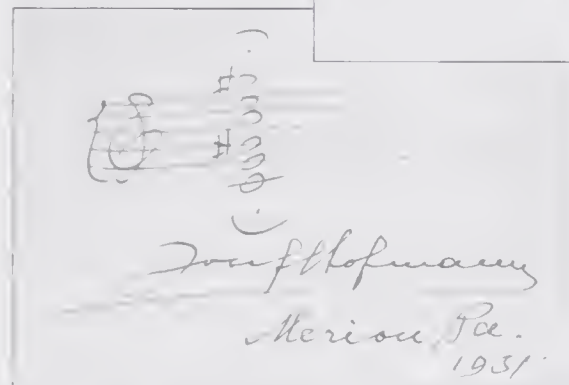 Josef Hofmann
Merion, Pa.
1931